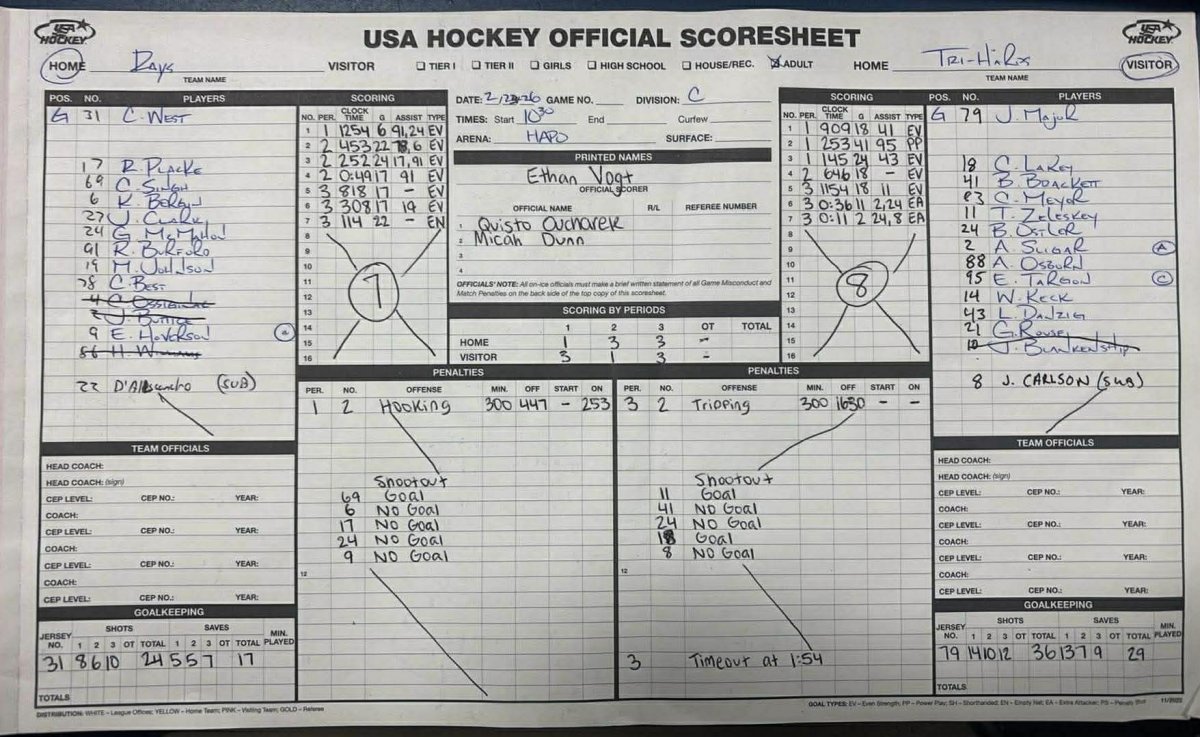 USA HOCKEY
USA HOCKEY OFFICIAL SCORESHEET
USA HOCKEY
HOME Rays VISITOR TIER I TIER II GIRLS HIGH SCHOOL HOUSE/REC. ADULT HOME Tri-Hards VISITOR
TEAM NAME TEAM NAME
POS. NO. PLAYERS
G 31 C. West
17 R. Placke
69 C. Singh
6 K. Bergin
27 J. Clark
24 G. McMahon
91 R. Burford
19 M. Johnson
78 C. Best
4
2
9 E. Hoverson a
56 H.
22 D'Alessandro (SUB)
SCORING
NO. PER. CLOCK TIME G ASSIST TYPE
1 1 1254 6 91,24 EV
2 2 453 22 78,6 EV
3 2 252 24 17,91 EV
4 2 0:49 17 91 EV
5 3 818 17 - EV
6 3 308 17 19 EV
7 3 114 22 - EN
8
9
10
11
12
13
14
15
16
7
DATE: 2/23/26 GAME NO. DIVISION: C
TIMES: Start 1030 End Curfew
ARENA: HAPO SURFACE:
PRINTED NAMES
Ethan Vogt
OFFICIAL SCORER
OFFICIAL NAME R/L REFEREE NUMBER
1 Quisto
2 Micah Dunn
3
4
OFFICIALS' NOTE: All on-ice officials must make a brief written statement of all Game Misconduct and
Match Penalties on the back side of the top copy of this scoresheet.
SCORING BY PERIODS
1 2 3 OT TOTAL
HOME 1 3 3 -
VISITOR 3 1 3 -
SCORING
NO. PER. CLOCK TIME G ASSIST TYPE
1 1 909 18 41 EV
2 1 253 41 95 PP
3 1 145 24 43 EV
4 2 646 18 - EV
5 3 1154 18 11 EV
6 3 0:36 11 2,24 EA
7 3 0:11 2 24,8 EA
8
9
10
11
12
13
14
15
16
8
POS. NO. PLAYERS
G 79 J. Majur
18 C. Lakey
41 B. Brackett
83 C. Meyer
11 T. Zeleskey
24 B. Ostler
2 A. Sugar A
88 A. Osburn
95 E. Targon C
14 W. Keck
43 L. Danzig
21 G. Rouse
10 J. Blankenship
8 J. CARLSON (SUB)
PENALTIES
PER. NO. OFFENSE MIN. OFF START ON
1 2 Hooking 300 447 - 253
Shootout
69 Goal
6 NO Goal
17 NO Goal
24 NO Goal
9 NO Goal
12
PENALTIES
PER. NO. OFFENSE MIN. OFF START ON
3 2 Tripping 300 1630 - -
Shootout
11 Goal
41 NO Goal
24 NO Goal
18 Goal
8 NO Goal
12
3 Timeout at 1:54
TEAM OFFICIALS
HEAD COACH:
HEAD COACH: (sign)
CEP LEVEL: CEP NO.: YEAR:
COACH:
CEP LEVEL: CEP NO.: YEAR:
COACH:
CEP LEVEL: CEP NO.: YEAR:
COACH:
CEP LEVEL: CEP NO.: YEAR:
GOALKEEPING
JERSEY NO. SHOTS SAVES MIN. PLAYED
1 2 3 OT TOTAL 1 2 3 OT TOTAL
31 8 6 10 24 5 5 7 17
TOTALS
TEAM OFFICIALS
HEAD COACH:
HEAD COACH: (sign)
CEP LEVEL: CEP NO.: YEAR:
COACH:
CEP LEVEL: CEP NO.: YEAR:
COACH:
CEP LEVEL: CEP NO.: YEAR:
COACH:
CEP LEVEL: CEP NO.: YEAR:
GOALKEEPING
JERSEY NO. SHOTS SAVES MIN. PLAYED
1 2 3 OT TOTAL 1 2 3 OT TOTAL
79 14 10 12 36 13 7 9 29
TOTALS
DISTRIBUTION: WHITE – League Offices; YELLOW – Home Team; PINK – Visiting Team; GOLD – Referee
GOAL TYPES: EV – Even Strength; PP – Power Play; SH – Shorthanded; EN – Empty Net; EA – Extra Attacker; PS – Penalty Shot